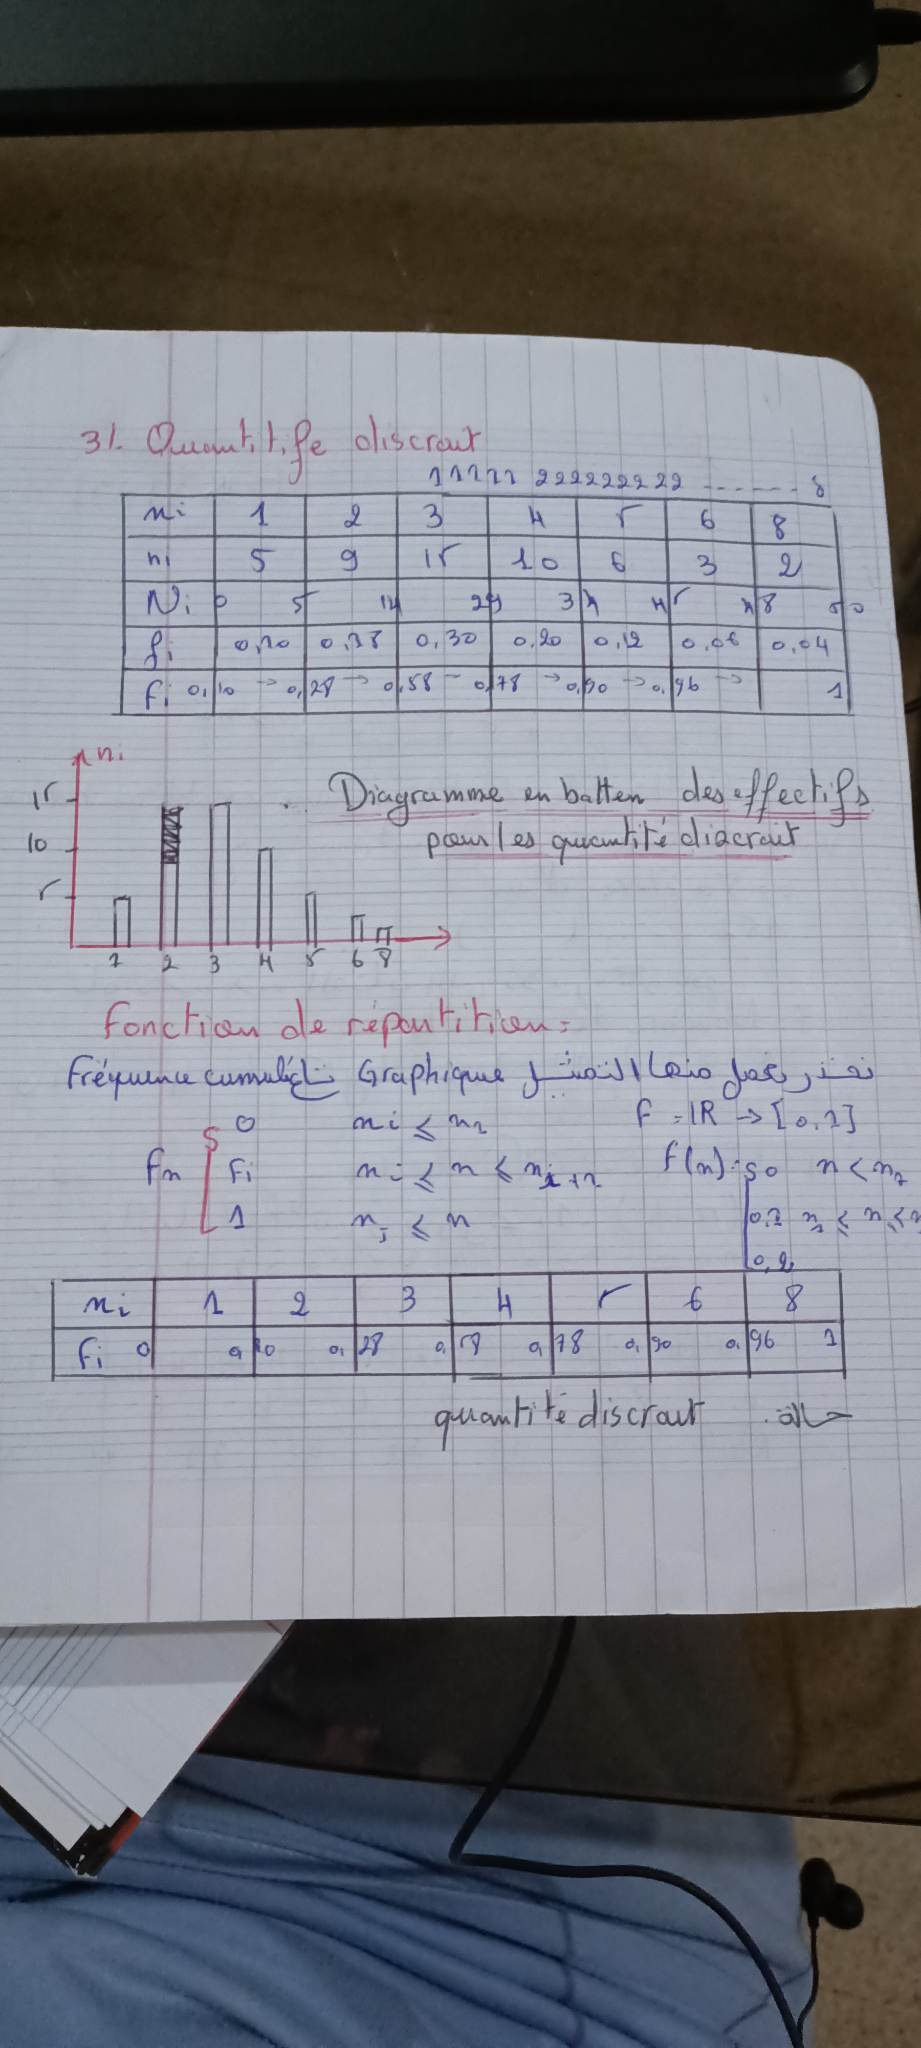 3/. Quantitife discraut
11111 222222222 ...... 8
xi 1 2 3 4 5 6 8
ni 5 9 15 10 6 3 2
Ni 0 5 14 29 39 45 48 50
fi 0,10 0,18 0,30 0,20 0,12 0,06 0,04
Fi 0,10 → 0,28 → 0,58 → 0,78 → 0,90 → 0,96 → 1
ni
15
10
5
1 2 3 4 5 6 8
Diagramme en batten des effectifs
pour les quantité discraut
Fonction de répartition =
Fréquence cumulé تاع Graphique التمثيل
Fn 0 xi ≤ x1
Fi xi ≤ x ≤ xi+1
1 xj ≤ x
F = IR → [0,1]
f(x) = 0 x < x1
0,1
0,2
xi 1 2 3 4 5 6 8
Fi 0 0,10 0,28 0,58 0,78 0,90 0,96 1
quantité discraut حالة